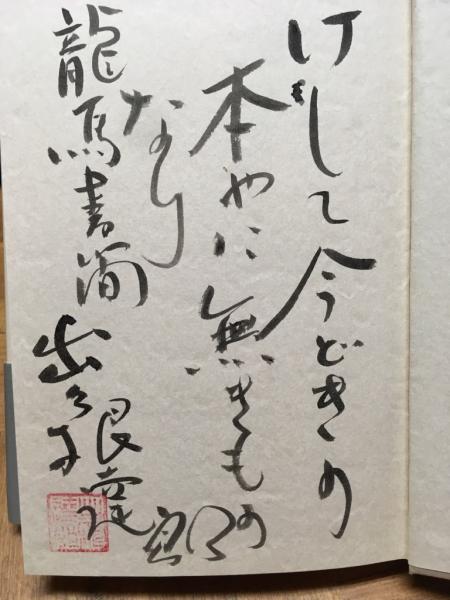 けして今どきの
本やに無きもの
なり
龍馬書簡
出久根達郎